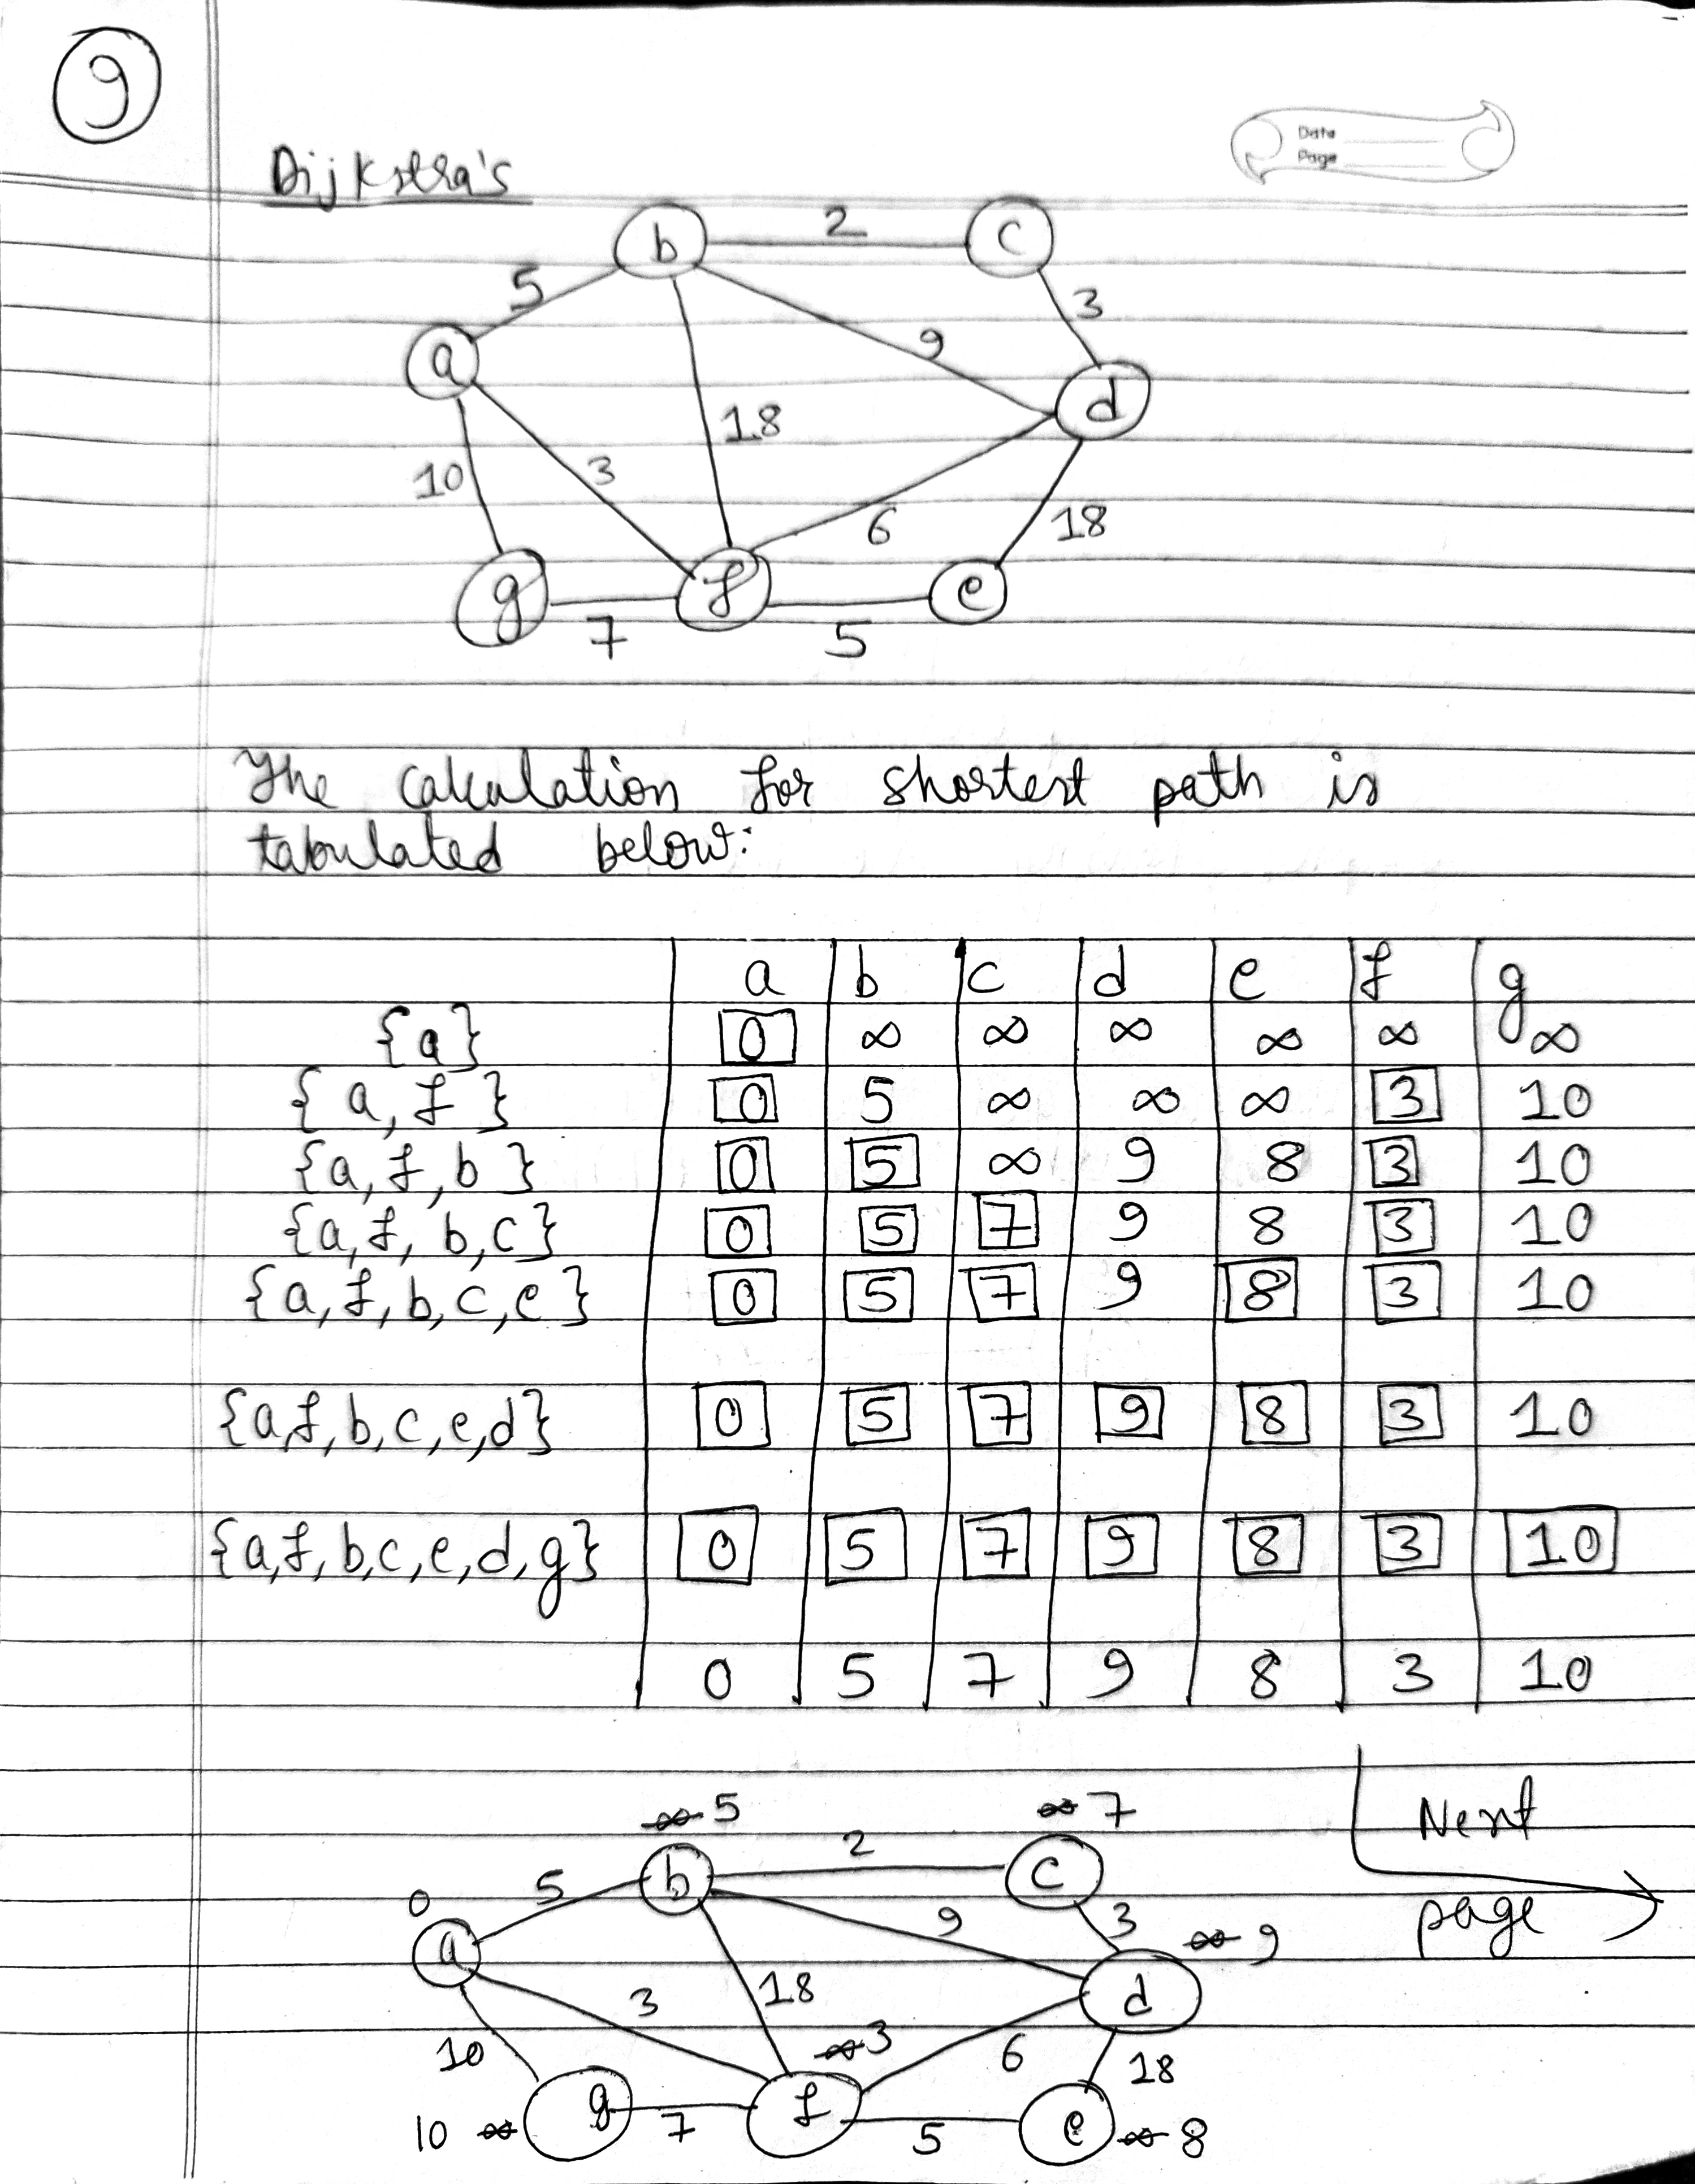 9
Date
Page
Dijkstra's
b 2 c
5 3
a 9 d
18
10 3 6 18
g 7 f 5 e
The calculation for shortest path is
tabulated below:
a b c d e f g
{a} 0 ∞ ∞ ∞ ∞ ∞ ∞
{a, f} 0 5 ∞ ∞ ∞ 3 10
{a, f, b} 0 5 ∞ 9 8 3 10
{a, f, b, c} 0 5 7 9 8 3 10
{a, f, b, c, e} 0 5 7 9 8 3 10
{a, f, b, c, e, d} 0 5 7 9 8 3 10
{a, f, b, c, e, d, g} 0 5 7 9 8 3 10
0 5 7 9 8 3 10
Next
page
∞ 5 ∞ 7
b 2 c
0 5 9 3 ∞ 9
a 3 18 d
10 ∞ 3 6 18
10 ∞ g 7 f 5 e ∞ 8